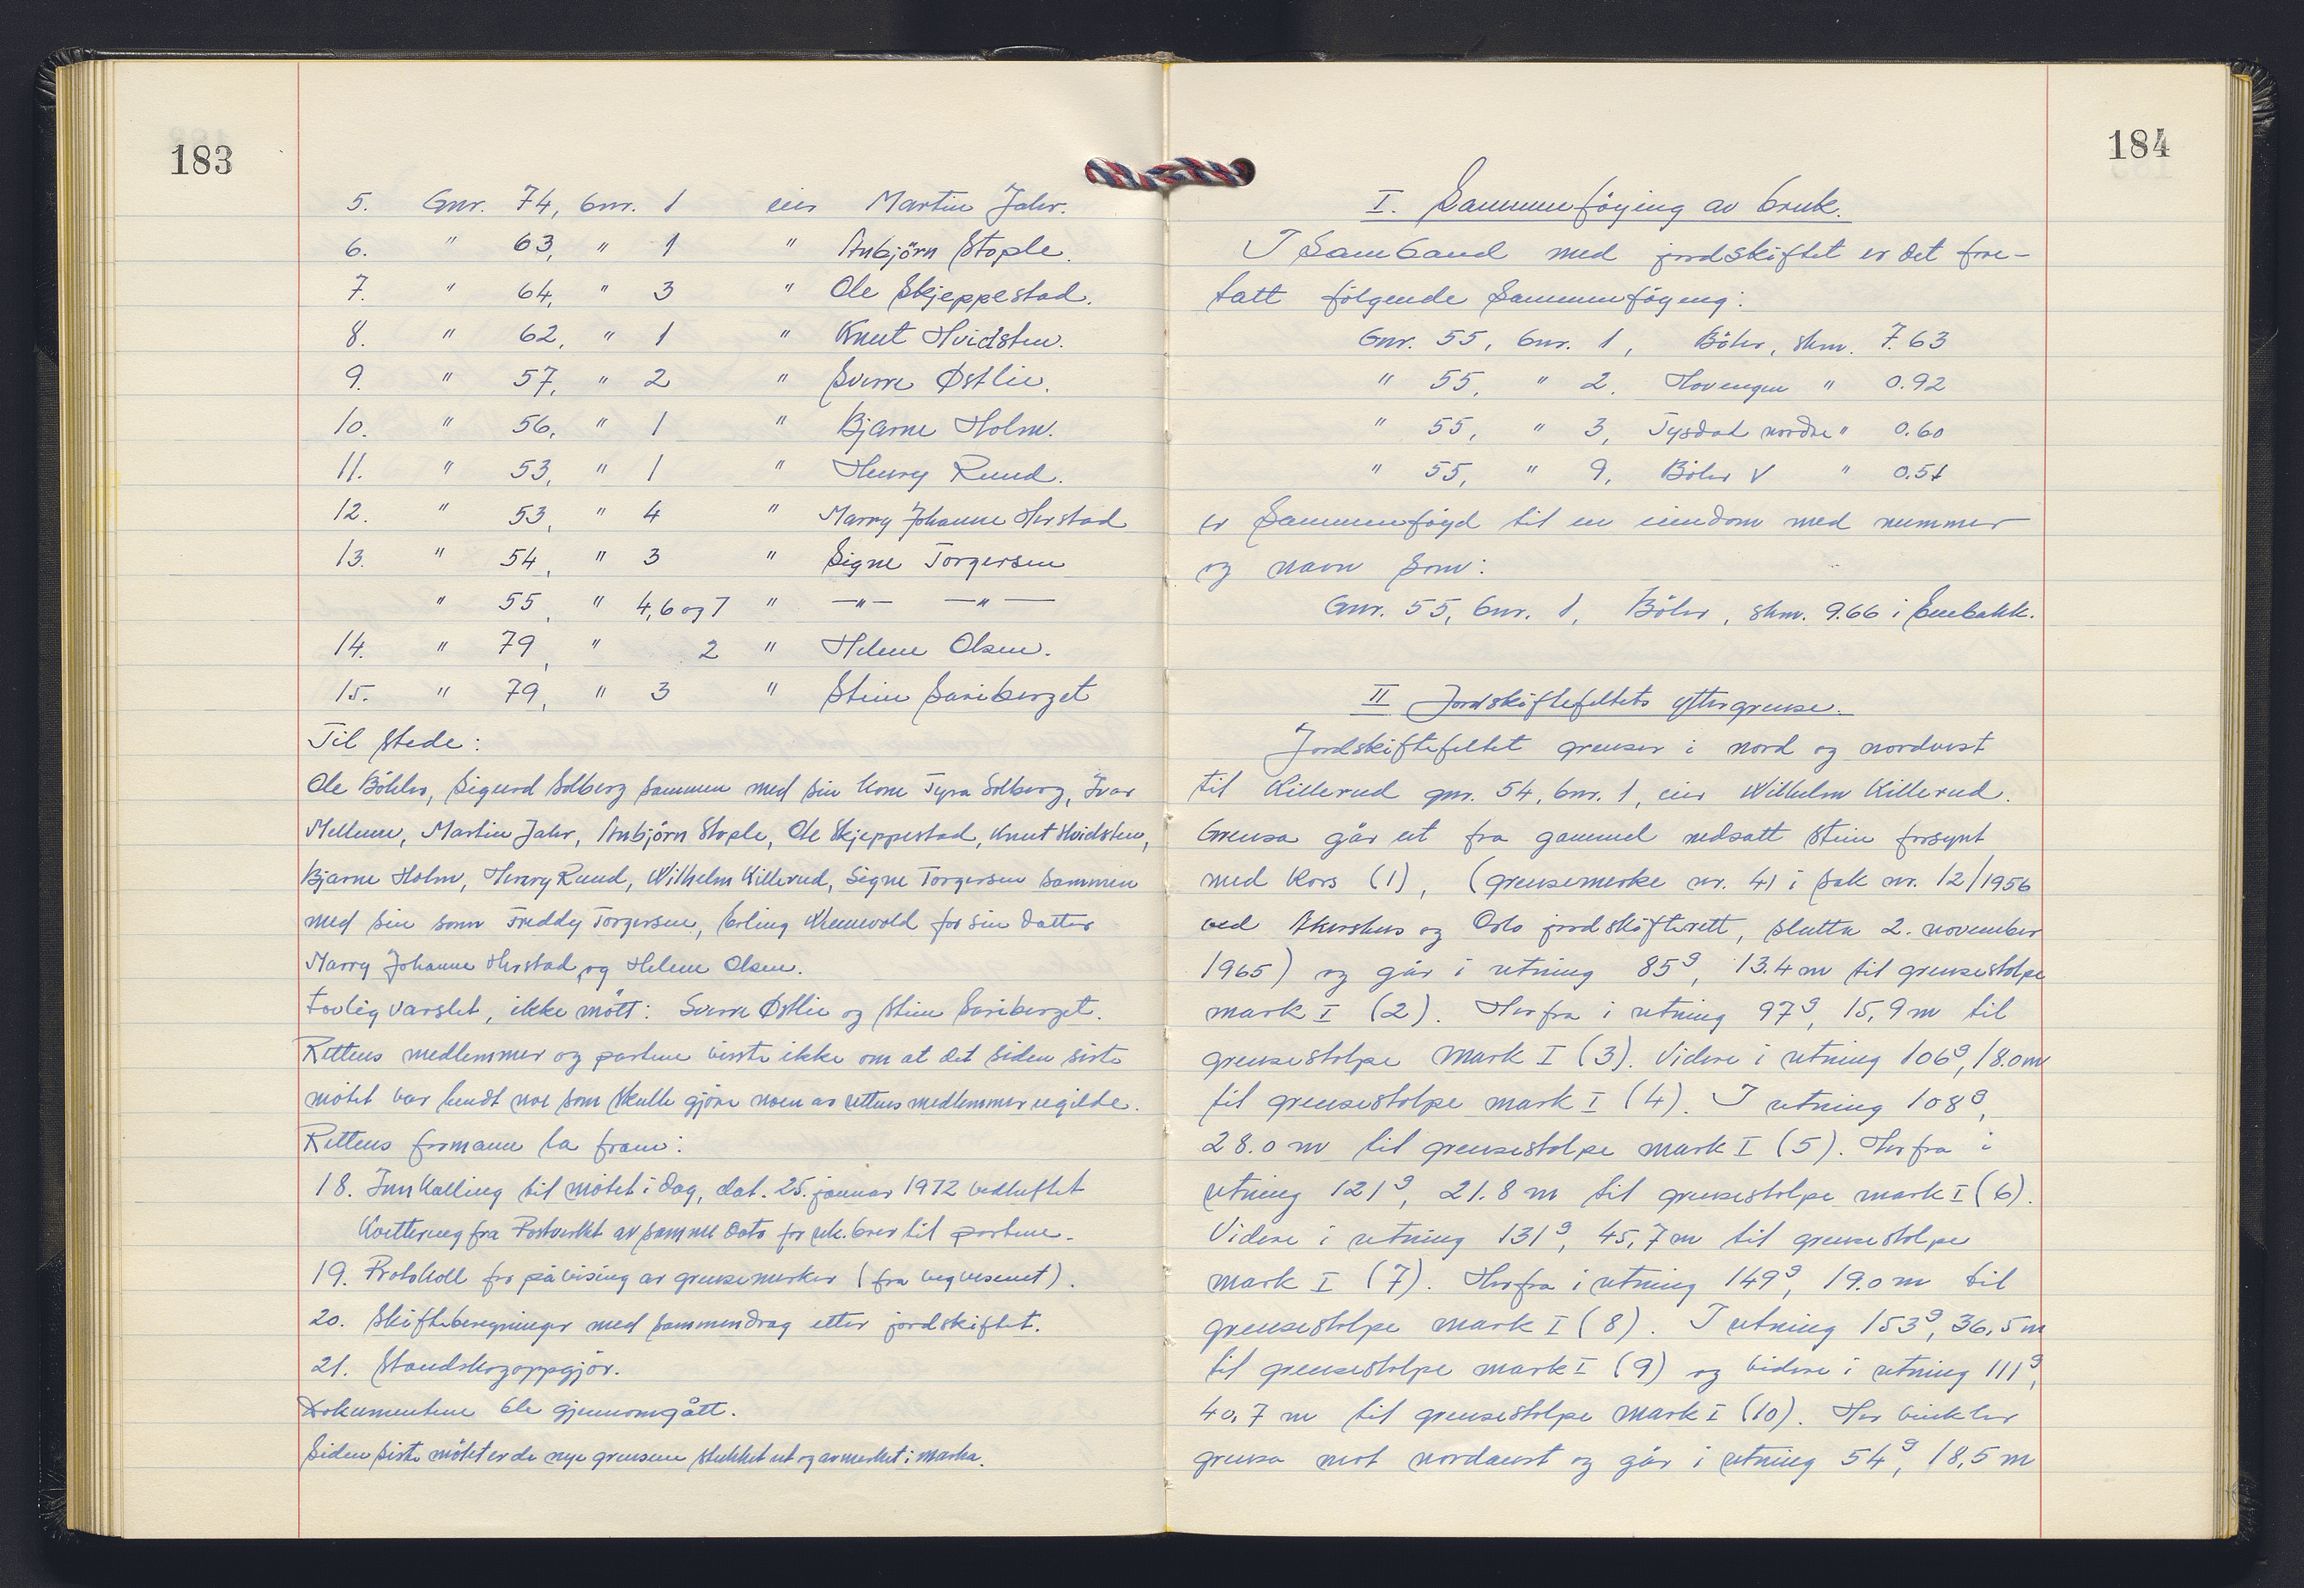 183
5. Gnr. 74, bnr. 1 eier Martin Jahr.
6. " 63, " 1 " Anbjörn Stople.
7. " 64, " 3 " Ole Skjeppestad.
8. " 62, " 1 " Knut Hvidsten.
9. " 57, " 2 " Sverre Østlie.
10. " 56, " 1 " Bjarne Holm.
11. " 53, " 1 " Henry Ruud.
12. " 53, " 4 " Marry Johanne Herstad
13. " 54, " 3 " Signe Torgersen
" 55, " 4, 6 og 7 " —"— —"—
14. " 79, " 2 " Helene Olsen.
15. " 79, " 3 " Stein Sariberget
Til stede:
Ole Böhler, Sigurd Solberg sammen med sin kone Tyra Solberg, Ivar
Mellum, Martin Jahr, Anbjörn Stople, Ole Skjeppestad, Knut Hvidsten,
Bjarne Holm, Henry Ruud, Wilhelm Killerud, Signe Torgersen sammen
med sin sönn Freddy Torgersen, Erling for sin datter
Marry Johanne Herstad, og Helene Olsen.
Lovlig varslet, ikke mött: Sverre Østlie og Stein Sariberget.
Rettens medlemmer og partene visste ikke om at det siden siste
mötet var hendt noe som skulle gjöre noen av rettens medlemmer ugilde.
Rettens formann la fram:
18. Innkalling til mötet i dag, dat. 25. januar 1972 vedheftet
kvittering fra Postverket av samme dato for rek. brev til partene.
19. Protokoll for påvising av grensemerker (fra vegvesenet).
20. Skifteberegninger med sammendrag etter jordskiftet.
21. Standskogoppgjör.
Dokumentene ble gjennomgått.
Siden siste mötet er de nye grensene stukket ut og avmerket i marka.
184
I. Sammenföying av bruk.
I samband med jordskiftet er det fore-
tatt fölgende sammenföying:
Gnr. 55, bnr. 1, Böler, skm. 7.63
" 55, " 2, Hovengen " 0.92
" 55, " 3, Tysdal nordre " 0.60
" 55, " 9, Böler V " 0.51
er sammenföyd til en eiendom med nummer
og navn som:
Gnr. 55, bnr. 1, Böler, skm. 9.66 i Enebakk.
II Jordskiftefeltets yttergrense.
Jordskiftefeltet grenser i nord og nordvest
til Killerud gnr. 54, bnr. 1, eier Wilhelm Killerud.
Grensa går ut fra gammel nedsatt stein forsynt
med kors (1), (grensemerke nr. 41 i sak nr. 12/1956
ved Akershus og Oslo jordskifterett, slutta 2. november
1965) og går i retning 85g, 13.4 m til grensestolpe
mark I (2). Herfra i retning 97g, 15,9 m til
grensestolpe mark I (3). Videre i retning 106g, 18.0 m
til grensestolpe mark I (4). I retning 108g,
28.0 m til grensestolpe mark I (5). Herfra i
retning 121g, 21.8 m til grensestolpe mark I (6).
Videre i retning 131g, 45,7 m til grensestolpe
mark I (7). Herfra i retning 149g, 19.0 m til
grensestolpe mark I (8). I retning 153g, 36,5 m
til grensestolpe mark I (9) og videre i retning 111g,
40,7 m til grensestolpe mark I (10). Her vinkler
grensa mot nordaust og går i retning 54g, 18,5 m